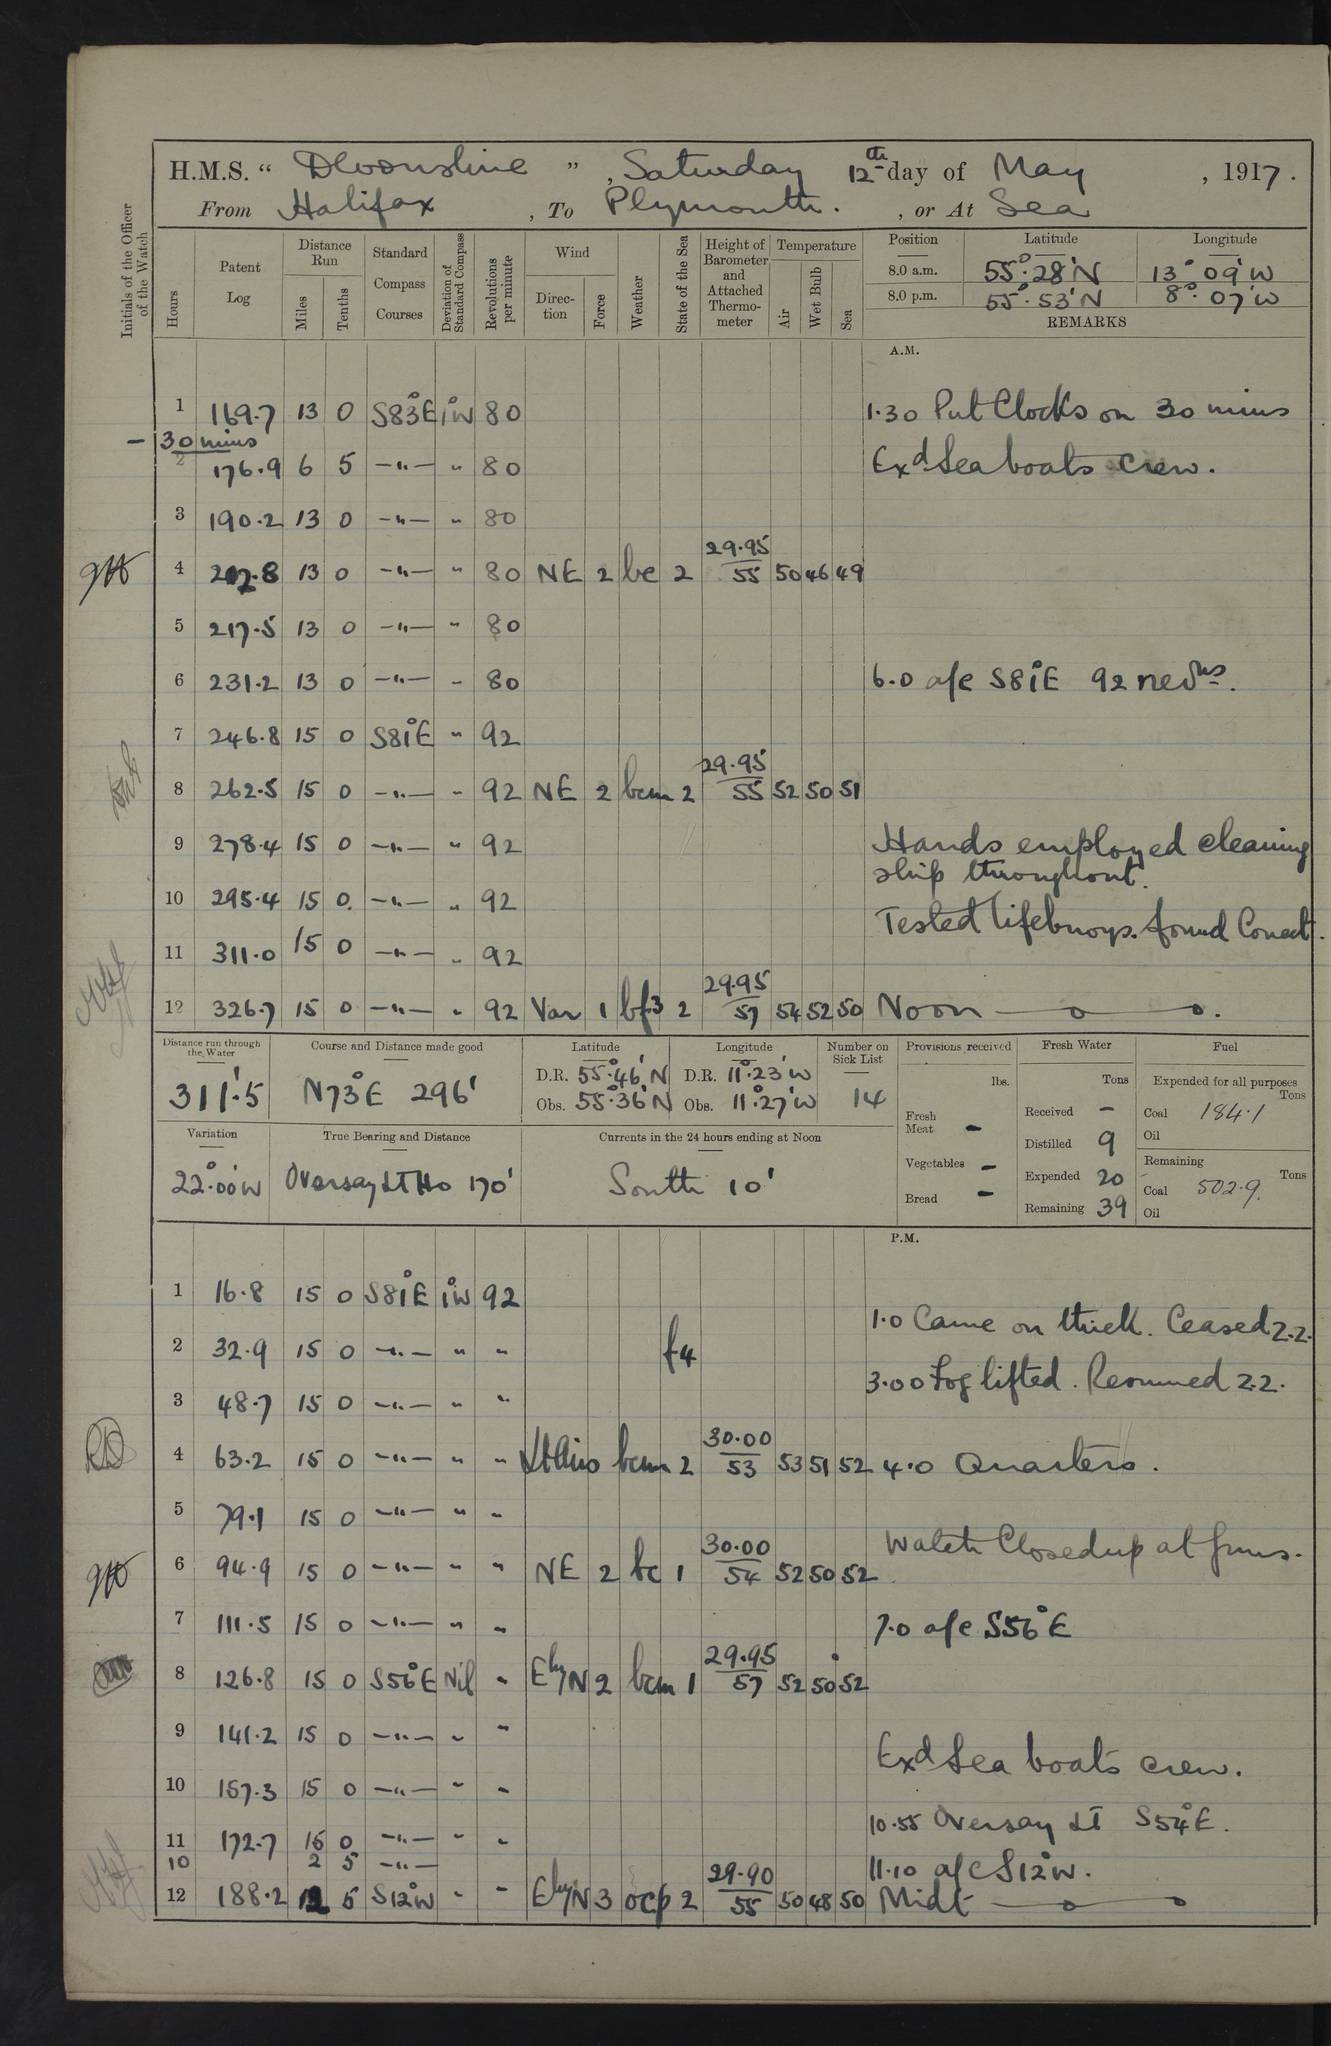 H.M.S. “ Devonshire ” , Saturday 12th day of May , 1917.
From Halifax , To Plymouth. , or At Sea
Initials of the Officer of the Watch
Hours
Patent Log
Distance Run
Miles
Tenths
Standard Compass Courses
Deviation of Standard Compass
Revolutions per minute
Wind
Direction
Force
Weather
State of the Sea
Height of Barometer and Attached Thermometer
Temperature
Air
Wet Bulb
Sea
Position Latitude Longitude
8.0 a.m. 55°.28'N 13° 09'W
8.0 p.m. 55°.53'N 8°. 07'W
REMARKS
A.M.
1 169.7 13 0 S83°E 1°W 80 1.30 Put Clocks on 30 mins
— 30 mins
2 176.9 6 5 —"— " 80 Exd Sea boats crew.
3 190.2 13 0 —"— " 80
29.95
4 202.8 13 0 —"— " 80 NE 2 bc 2 55 50 46 49
5 217.5 13 0 —"— " 80
6 231.2 13 0 —"— " 80 6.0 a/c S81°E 92 revns.
7 246.8 15 0 S81°E " 92
29.95
8 262.5 15 0 —"— " 92 NE 2 bcm 2 55 52 50 51
9 278.4 15 0 —"— " 92 Hands employed cleaning
ship throughout.
10 295.4 15 0. —"— " 92
Tested lifebuoys. found Correct.
11 311.0 15 0 —"— " 92
29.95
12 326.7 15 0 —"— " 92 Var 1 bf.3 2 57 54 52 50 Noon
Distance run through the Water
311'.5
Course and Distance made good
N73°E 296'
Latitude
D.R. 55°.46'N
Obs. 55°.36'N
Longitude
D.R. 11°.23'W
Obs. 11°.27'W
Number on Sick List
14
Variation
22°.00'W
True Bearing and Distance
Oversay LT Ho 170'
Currents in the 24 hours ending at Noon
South 10'
Provisions received
lbs.
Fresh Meat –
Vegetables –
Bread –
Fresh Water
Tons
Received –
Distilled 9
Expended 20
Remaining 39
Fuel
Expended for all purposes
Tons
Coal 184.1
Oil
Remaining
Tons
Coal 502.9.
Oil
P.M.
1 16.8 15 0 S81°E 1°W 92
1.0 Came on thick. Ceased Z.Z.
2 32.9 15 0 —"— " " f4
3.00 Fog lifted. Resumed Z.Z.
3 48.7 15 0 —"— " "
30.00
4 63.2 15 0 —"— " " Lt Airs bcm 2 53 53 51 52 4.0 Quarters.
5 79.1 15 0 —"— " "
Watch Closed up at guns.
30.00
6 94.9 15 0 —"— " " NE 2 bc 1 54 52 50 52
7 111.5 15 0 —"— " " 7.0 a/c S56°E
29.95
8 126.8 15 0 S56°E Nil " EbyN 2 bcm 1 57 52 50 52
9 141.2 15 0 —"— " "
Exd Sea boats crew.
10 157.3 15 0 —"— " "
10.55 Oversay LT S54°E.
11 172.7 15 0 —"— " "
10 2 5 —"— 11.10 a/c S12°W.
29.90
12 188.2 12 5 S12°W " " EbyN 3 ocp 2 55 50 48 50 Midt